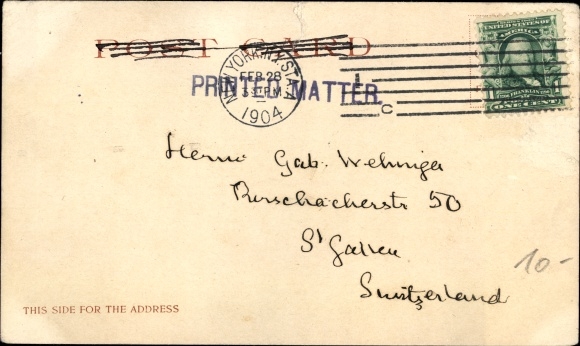 POST CARD
NEW YORK, N.Y. STA.
FEB 28
PM
1904
PRINTED MATTER.
C
UNITED STATES OF
AMERICA
FRANKLIN
1 ONE CENT 1
Herrn Gab. Wehinger
Rorschacherstr 50
St Gallen
Switzerland
10-
THIS SIDE FOR THE ADDRESS